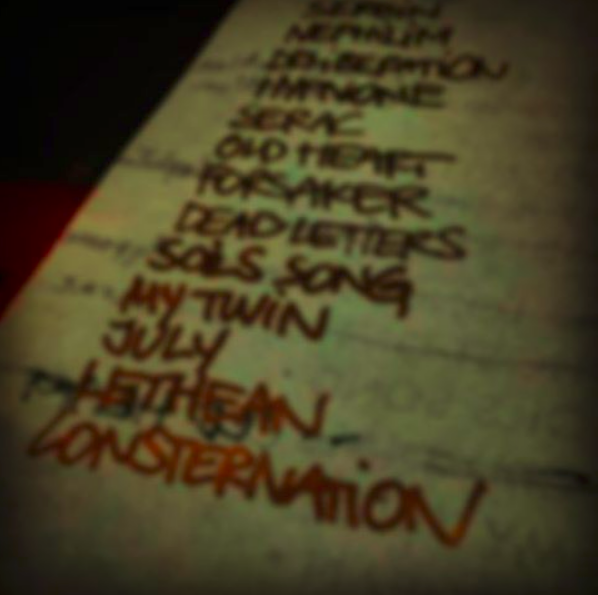 SERPENT
NEPHILIM
DELIBERATION
HYPNONE
SERAC
OLD HEART
FORSAKER
DEAD LETTERS
SOILS SONG
MY TWIN
JULY
LETHEAN
CONSTERNATION